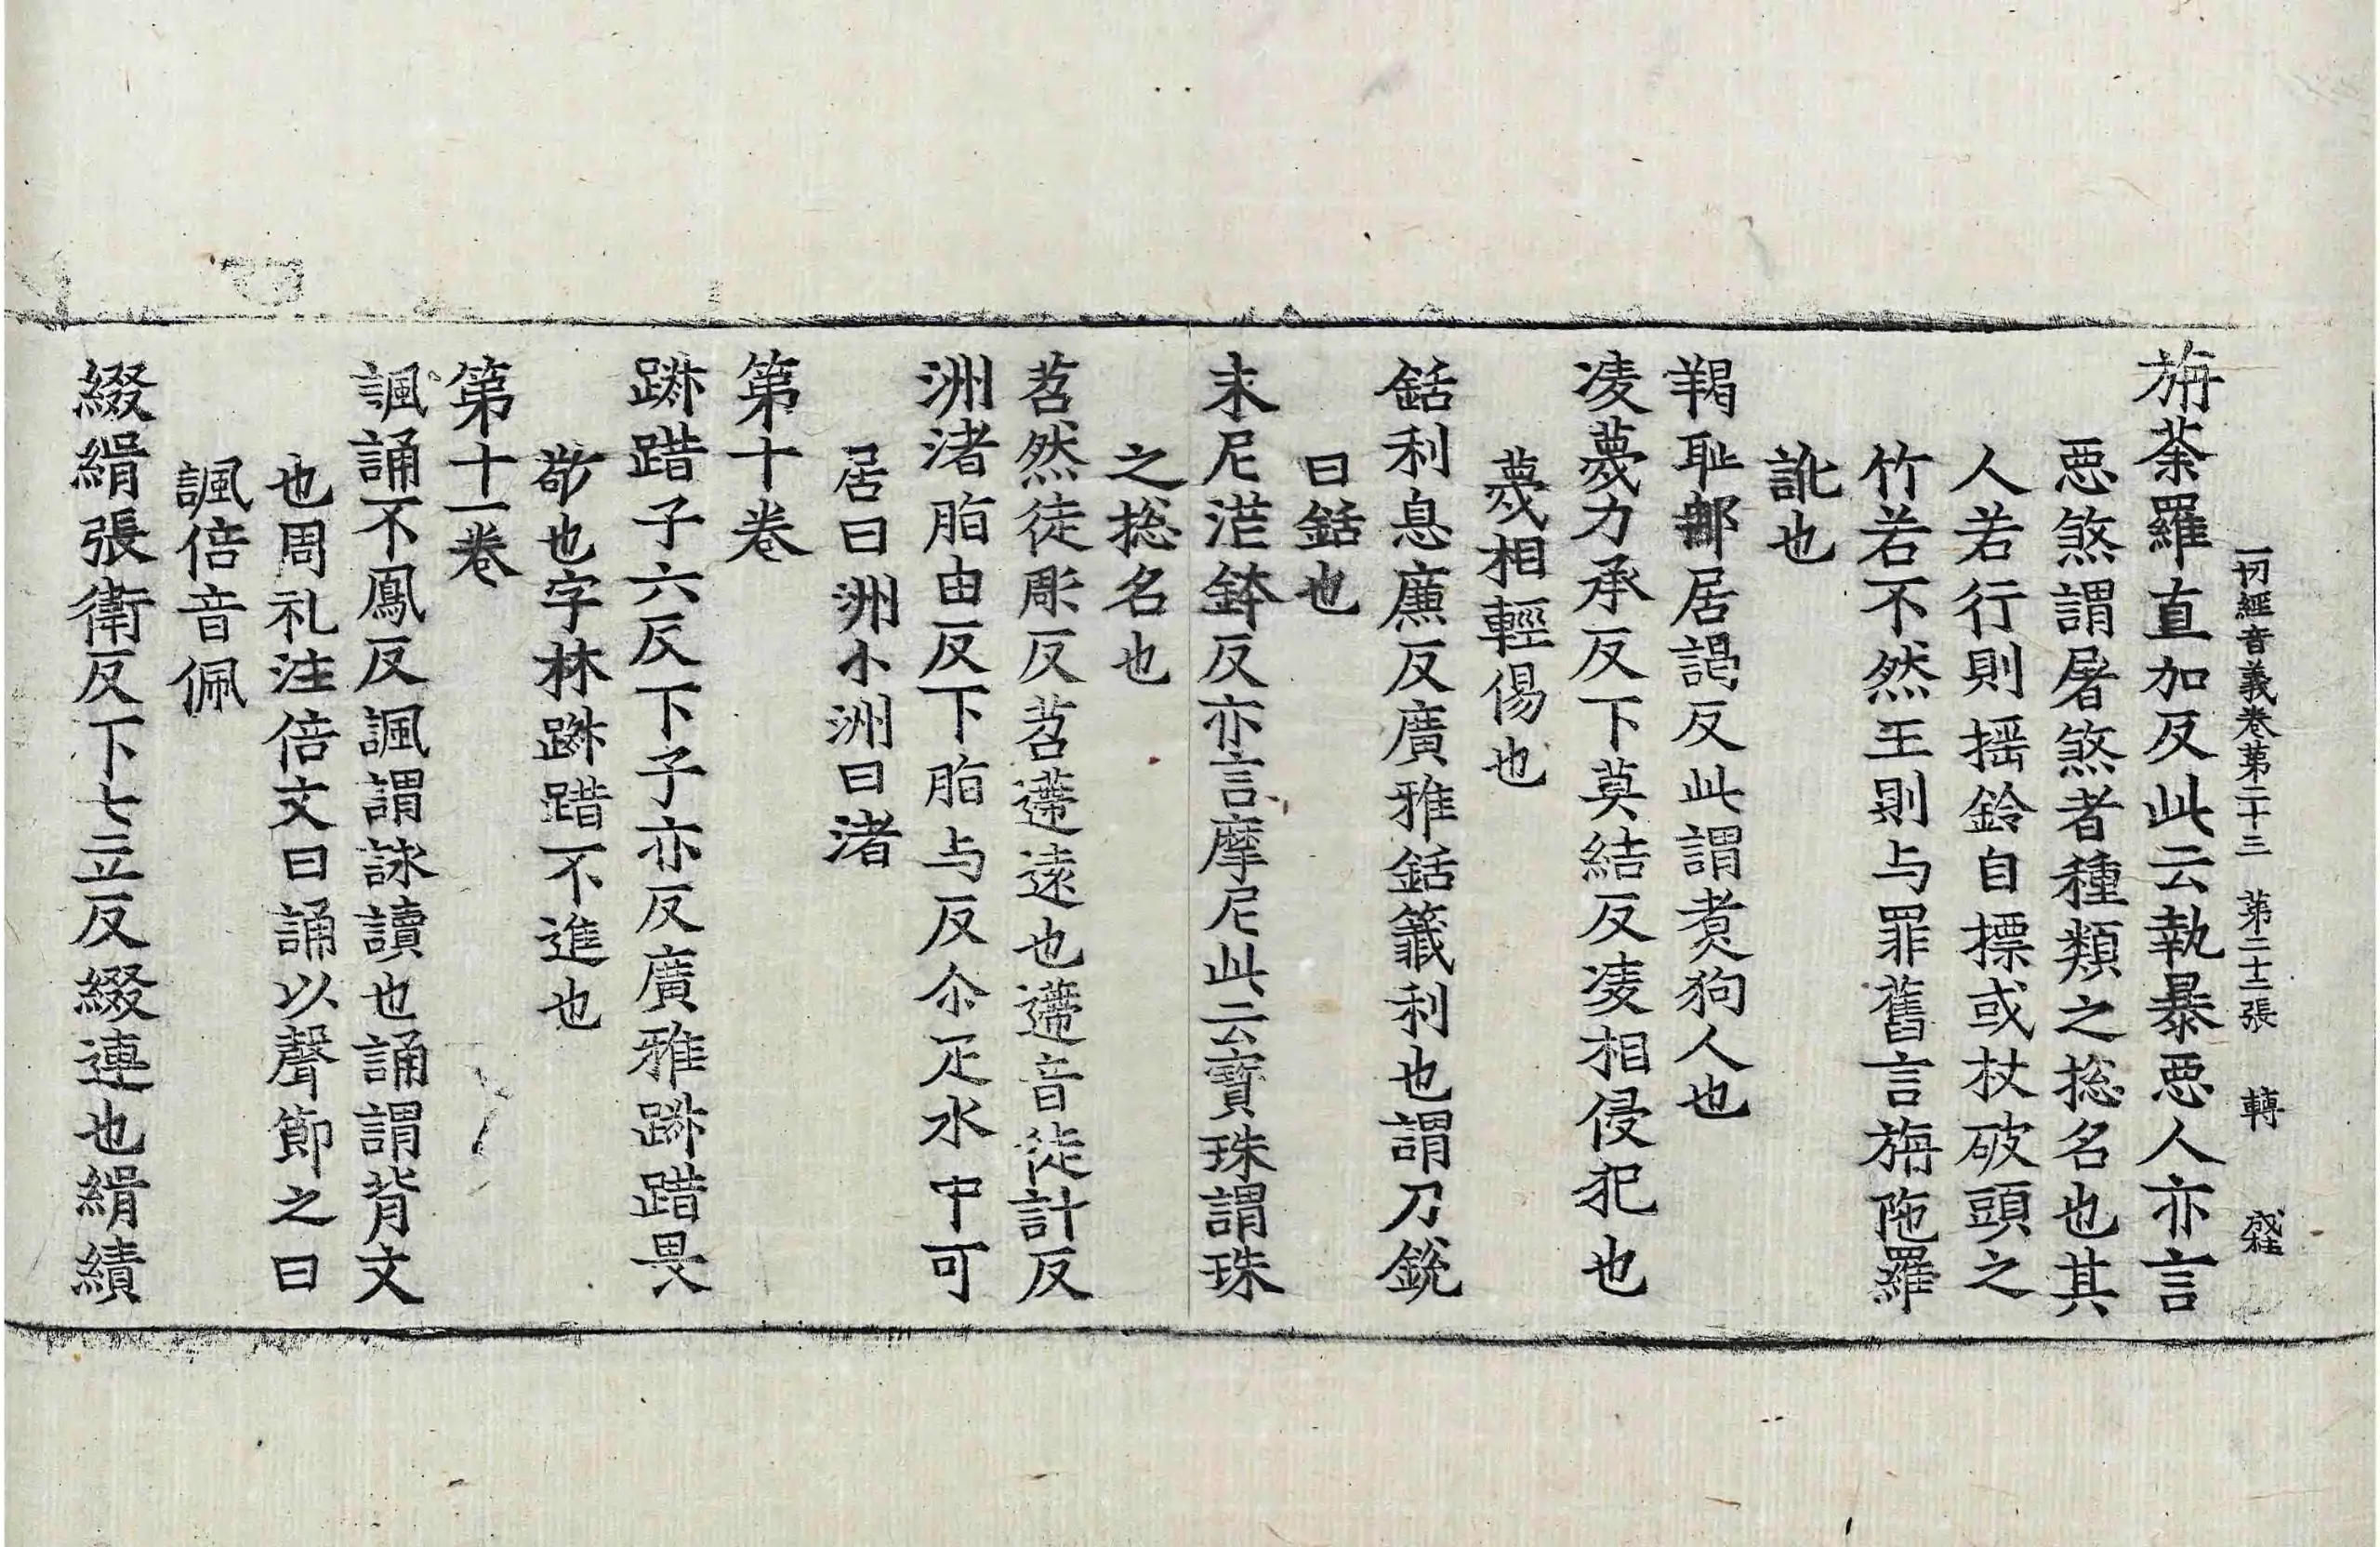 一切經音義卷第二十三 第二十二張 轉
旃荼羅直加反此云執暴惡人亦言
惡煞謂屠煞者種類之捴名也其
人若行則搖鈴自摽或杖破頭之
竹若不然王則与罪舊言旃陁羅
訛也
羯耻䣋居謁反此謂煑狗人也
凌蔑力承反下莫結反凌相侵犯也
蔑相輕傷也
銛利息廉反廣雅銛籤利也謂刀銳
曰銛也
末尼莽鉢反亦言摩尼此云寶珠謂珠
之捴名也
苕然徒彫反苕遰遠也遰音徒計反
洲渚脂由反下脂与反尒疋水中可
居曰洲小洲曰渚
第十卷
踧踖子六反下子亦反廣雅踧踖畏
敬也字林踧踖不進也
第十一卷
諷誦不鳳反諷謂詠讀也誦謂背文
也周礼注倍文曰誦以聲節之曰
諷倍音佩
綴緝張衛反下七立反綴連也緝績